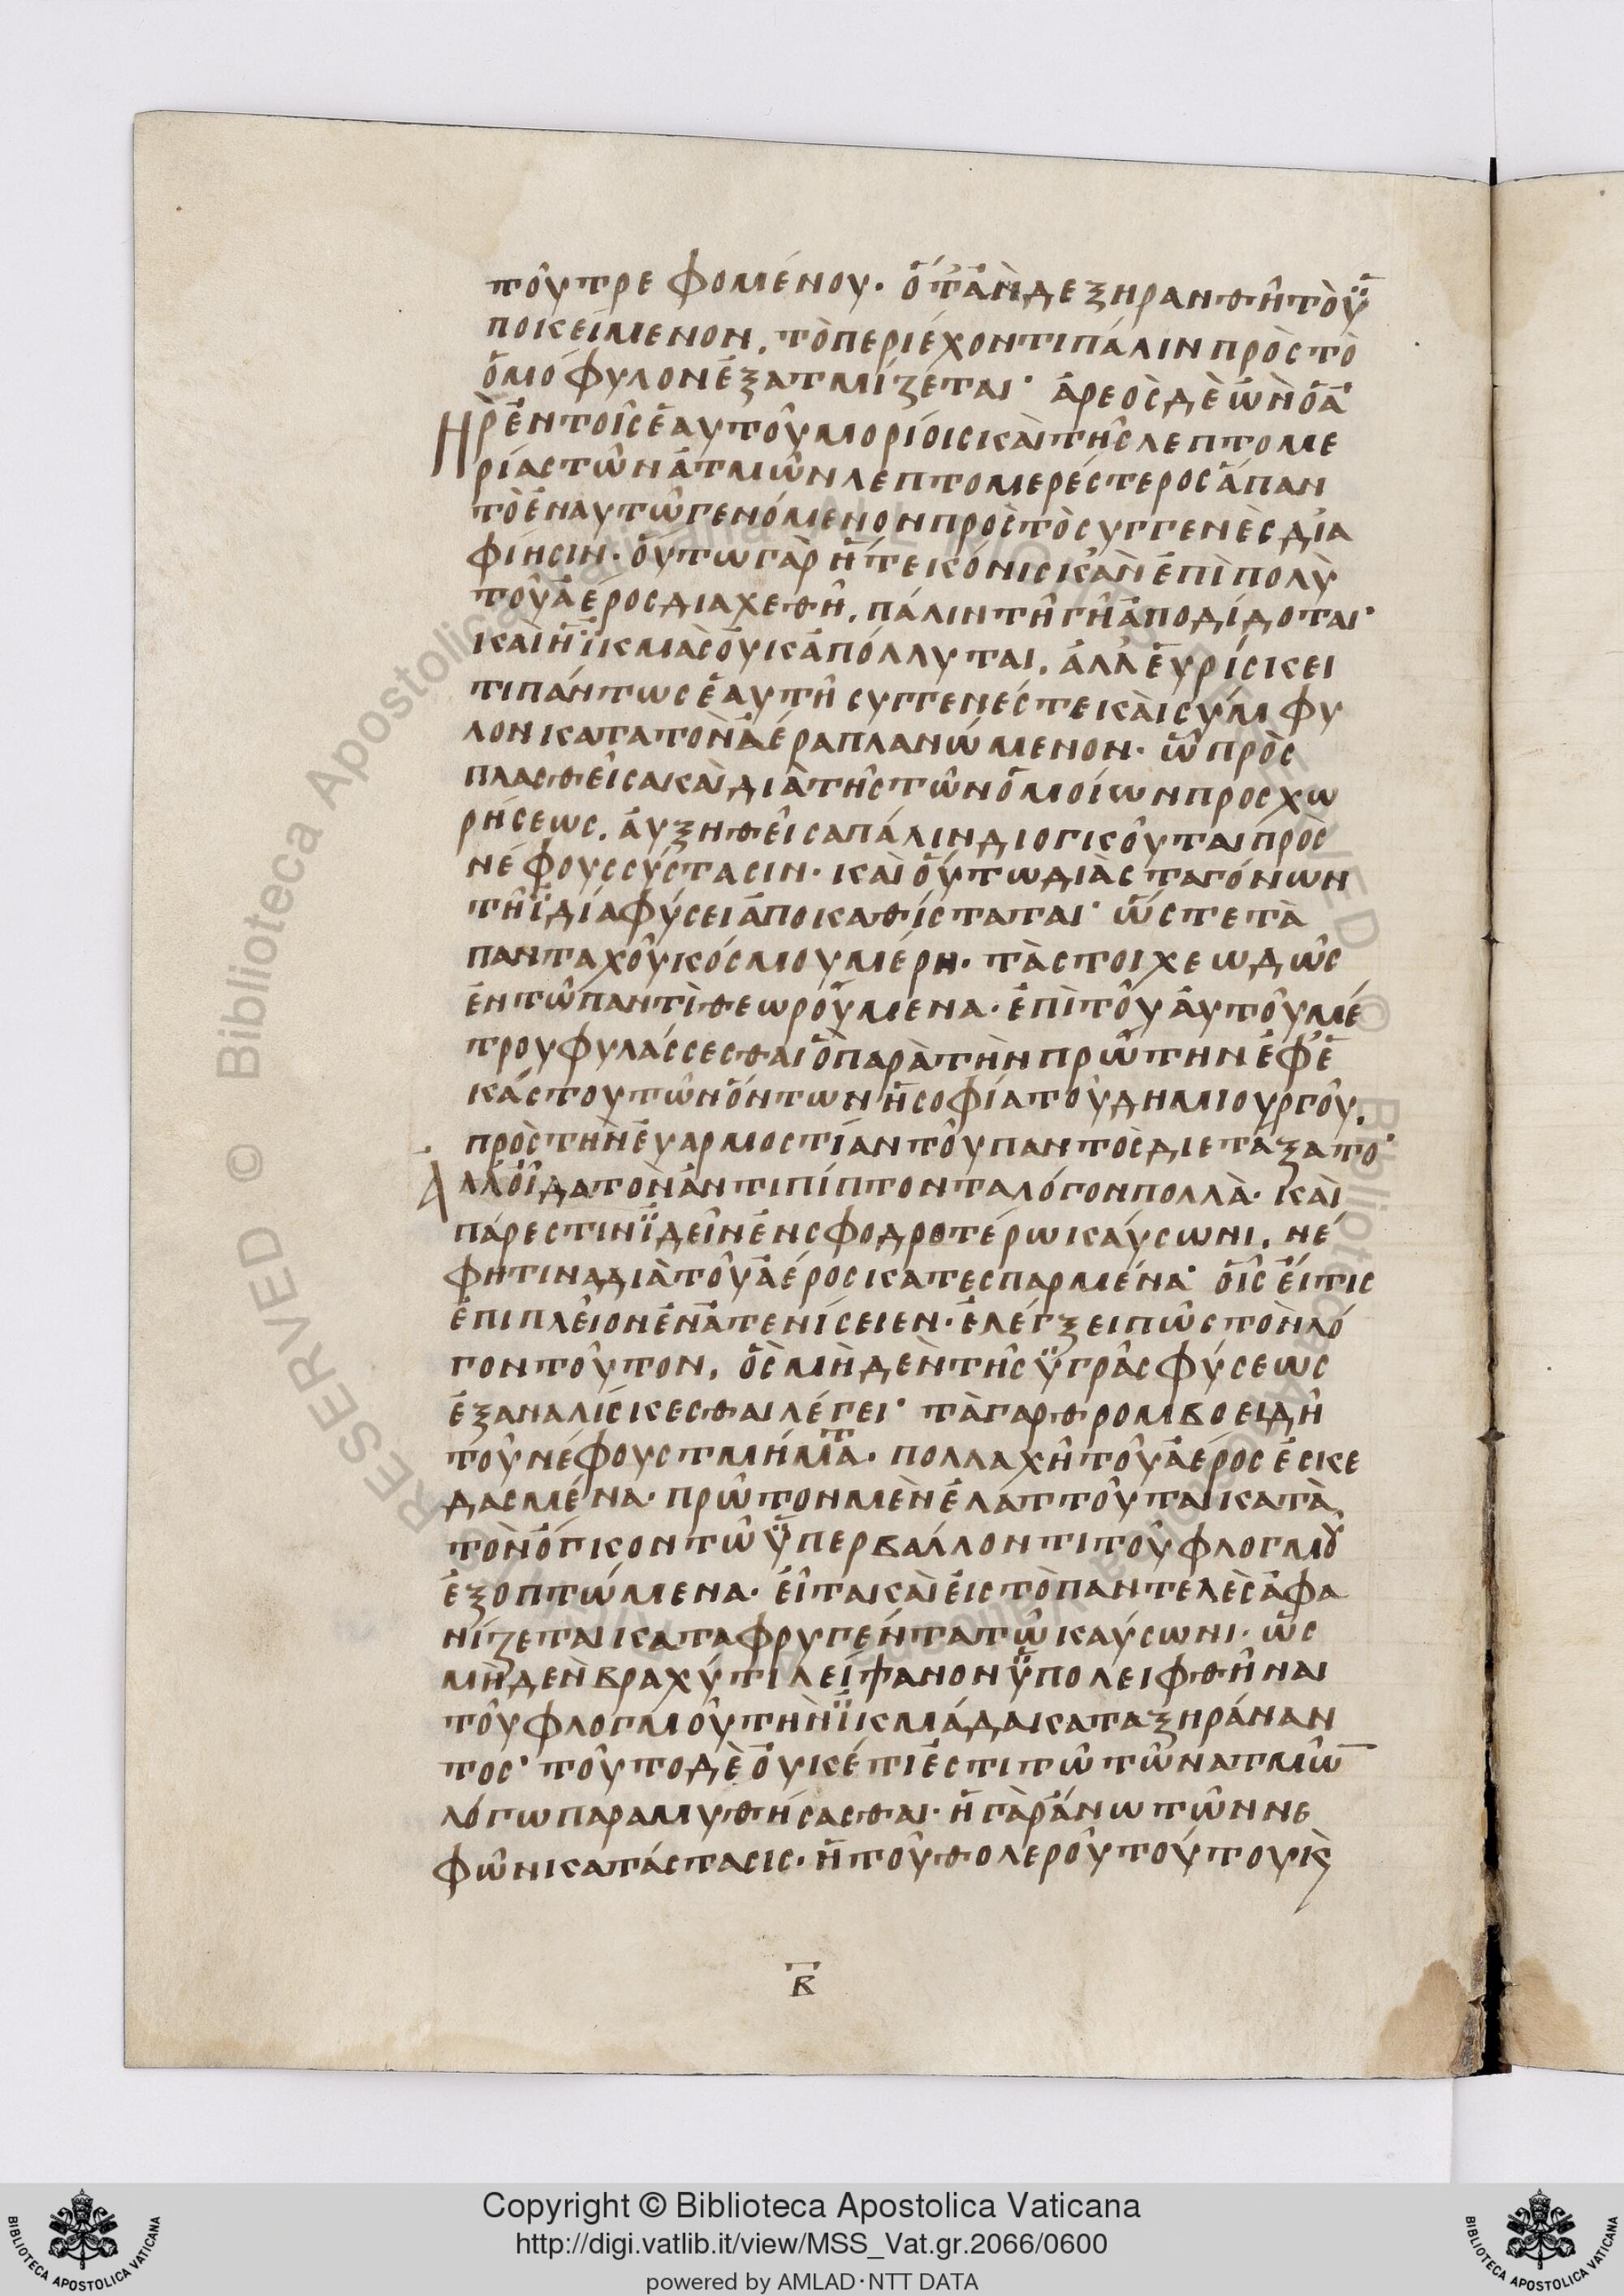 τοῦ τρεφομένου· ὅτἂν δε ξηρανθῆ τὸ ὑ
ποκείμενον, τὸ περιέχοντι πάλιν πρὸς τὸ
ὁμόφυλον ἐξατμίζεται· ἀρεὸς δὲ ὢν ὁ ἀ
ὴρ ἐν τοῖς ἑαυτοῦ μορίοις καὶ τῆς λεπτομε
ρίας τῶν ἀτμῶν λεπτομερέστερος ἅπαν
τὸ ἐν αυτῶ γενόμενον πρὸς τὸ συγγενὲς δια
φίησιν· οὕτω γὰρ ἥ τε κόνις κἂν ἐπὶ πολὺ
τοῦ ἀέρος διαχεθῆ, πάλιν τῆ γῆ ἀποδίδοται·
καὶ ἡ ἰκμὰς οὐκ ἀπόλλυται, ἀλλ' εὑρίσκει
τι πάντως ἑαυτῆ συγγενές τε καὶ σύμφυ
λον κατα τὸν ἀέρα πλανώμενον· ὧ πρὸς
πλασθεῖσα καὶ διὰ τῆς τῶν ὁμοίων προσχω
ρήσεως, ἀυξηθεῖσα πάλιν διογκοῦται πρὸς
νέφους σύστασιν· καὶ οὕτω διὰ σταγόνων
τῆ ἰδία φύσει ἀποκαθίσταται· ὥστε τὰ
πανταχοῦ κόσμου μέρη· τὰ στοιχεωδῶς
ἐν τῶ παντὶ θεωρούμενα· ἐπὶ τοῦ ἀυτοῦ μέ
τρου φυλάσσεσθαι ὃ παρὰ τὴν πρώτην ἐφ' ἑ
κάστου τῶν ὄντων ἡ σοφία τοῦ δημιουργοῦ,
πρὸς τὴν ἐυαρμοστίαν τοῦ παντὸς διετάξατο·
Αλλ' οἶδα τὸν ἀντιπίπτοντα λόγον πολλὰ· καὶ
πάρεστιν ἰδεῖν ἐν σφοδροτέρω καύσωνι, νέ
φη τινα διὰ τοῦ ἀέρος κατεσπαρμένα· οἷς εἴ τις
ἐπιπλεῖον ἐνατενίσειεν· ἐλέγξει πῶς τὸν λό
γον τοῦτον, ὃς μὴδὲν τῆς ὑγρᾶς φύσεως
ἐξαναλίσκεσθαι λέγει· τὰ γαρ θρομβοειδῆ
τοῦ νέφους τμήματα· πολλαχῆ τοῦ ἀέρος ἐσκε
δασμένα· πρῶτον μὲν ἐλαττοῦται κατὰ
τὸν ὄγκον τῶ ὑπερβάλλοντι τοῦ φλογμοῦ
ἐξοπτώμενα· εἶτα καὶ εἰς τὸ παντελὲς ἀφα
νίζεται καταφρυγέντα τῶ καύσωνι· ὡς
μὴδὲν βραχύ τι λείψανον ὑπολειφθῆναι
τοῦ φλογμοῦ τὴν ἰκμάδα καταξηράναν
τος· τοῦτο δὲ οὐκέτι ἐστι τῶ τῶν ατμῶ
λόγω παραμυθήσασθαι· ἡ γὰρ ἄνω τῶν νε
φῶν κατάστασις· ἡ τοῦ θολεροῦ τούτου κὶ
β
Copyright © Biblioteca Apostolica Vaticana
http://digi.vatlib.it/view/MSS_Vat.gr.2066/0600
powered by AMLAD·NTT DATA
BIBLIOTECA APOSTOLICA VATICANA
BIBLIOTECA APOSTOLICA VATICANA